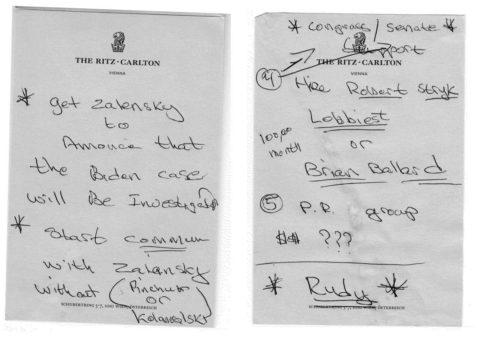 THE RITZ-CARLTON
VIENNA
* get Zalensky
to
Annouce that
the Biden case
will Be Investigated
* Start commun
with Zalansky
without (Pinchuk
or
Kolamoiski)
SCHUBERTRING 5-7, 1010 WIEN, ÖSTERREICH
* Congrass / Senate *
Support
THE RITZ-CARLTON
VIENNA
④ Hire Robert Stryk
Lobbiest
100,00
month
or
Brian Ballard
⑤ P.R. group
$$ ???
* Rudy *
SCHUBERTRING 5-7, 1010 WIEN, ÖSTERREICH